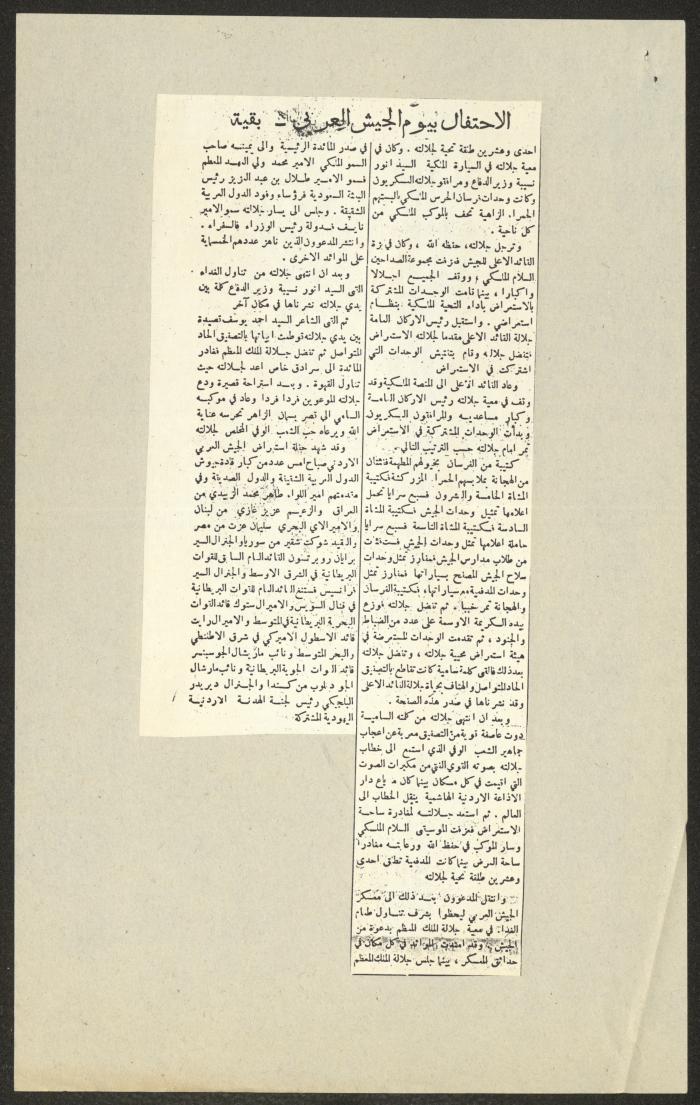 الاحتفال بيوم الجيش العربي – بقية
احدى وعشرين طلقة تحية لجلالته . وكان في
معية جلالته في السيارة الملكية السيد انور
نسيبة وزير الدفاع ومرافقو جلالته العسكريون
وكانت وحدات فرسان الحرس الملكي بالبستهم
الحمراء الزاهية تحف بالموكب الملكي من
كل ناحية .
وترجل جلالته، حفظه الله ، وكان في بزة
القائد الاعلى للجيش فعزفت مجموعة الصداحين
السلام الملكي ، ووقف الجميع اجلالا
واكبارا ، بينما قامت الوحدات المشتركة
بالاستعراض باداء التحية الملكية بنظام
استعراضي . واستقبل رئيس الاركان العامة
جلالة القائد الاعلى مقدما لجلالته الاستعراض
فتفضل جلالته وقام بتفتيش الوحدات التي
اشتركت في الاستعراض
وعاد القائد الاعلى الى المنصة الملكية وقد
وقف في معية جلالته رئيس الاركان العامة
وكبار مساعديه والمرافقون العسكريون
وبدأت الوحدات المشتركة في الاستعراض
تمر امام جلالته حسب الترتيب التالي .
كتيبة من الفرسان بخيولهم المطهمة ففئتان
من الهجانة بملابسهم الحمراء المزركشة فكتيبة
المشاة الخامسة والعشرون فسبع سرايا تحمل
اعلامها تمثل وحدات الجيش فكتيبة المشاة
السادسة فكتيبة المشاة التاسعة فسبع سرايا
حاملة اعلامها تمثل وحدات الجيش فست فئات
من طلاب مدارس الجيش فمفارز تمثل وحدات
سلاح الجيش المصفح بسياراتها فمفارز تمثل
وحدات المدفعية مع سياراتها ، فكتيبة الفرسان
والهجانة تمر خببا . ثم تفضل جلالته فوزع
بيده الكريمة الاوسمة على عدد من الضباط
والجنود ، ثم تقدمت الوحدات المستعرضة في
هيئة استعراض محيية جلالته ، وتفضل جلالته
بعد ذلك فالقى كلمة سامية كانت تقاطع بالتصفيق
الحاد المتواصل والهتاف بحياة جلالة القائد الاعلى
وقد نشرناها في صدر هذه الصفحة .
وبعد ان انتهى جلالته من كلمته السامية
دوت عاصفة قوية من التصفيق معربة عن اعجاب
جماهير الشعب الوفي الذي استمع الى خطاب
جلالته بصوته القوي النقي من مكبرات الصوت
التي اقيمت في كل مكان بينما كان مذياع دار
الاذاعة الاردنية الهاشمية ينقل الخطاب الى
العالم . ثم استعد جلالته لمغادرة ساحة
الاستعراض فعزفت الموسيقى السلام الملكي
وسار الموكب في حفظ الله ورعايته مغادرا
ساحة العرض بينما كانت المدفعية تطلق احدى
وعشرين طلقة تحية لجلالته
وانتقل المدعوون بعد ذلك الى معسكر
الجيش العربي ليحظوا بشرف تناول طعام
الغداء في معية جلالة الملك المعظم بدعوة من
الجيش ، وقد امتدت الموائد في كل مكان في
حدائق المعسكر ، بينما جلس جلالة الملك المعظم
في صدر المائدة الرئيسية والى يمينه صاحب
السمو الملكي الامير محمد ولي العهد المعظم
فسمو الامير طلال بن عبد العزيز رئيس
البعثة السعودية فرؤساء وفود الدول العربية
الشقيقة . وجلس الى يسار جلالته سمو الامير
نايف فدولة رئيس الوزراء فالسفراء .
وانتشر المدعوون الذين ناهز عددهم الخمسماية
على الموائد الاخرى .
وبعد ان انتهى جلالته من تناول الغداء
القى السيد انور نسيبة وزير الدفاع كلمة بين
يدي جلالته نشرناها في مكان آخر
ثم القى الشاعر السيد احمد يوسف قصيدة
بين يدي جلالته قوطعت ابياتها بالتصفيق الحاد
المتواصل ثم تفضل جلالة الملك المعظم فغادر
المائدة الى سرادق خاص اعد لجلالته حيث
تناول القهوة . وبعد استراحة قصيرة ودع
جلالته المدعوين فردا فردا وعاد في موكبه
السامي الى قصر بسمان الزاهر تحرسه عناية
الله ويرعاه حب الشعب الوفي المخلص لجلالته
وقد شهد حفلة استعراض الجيش العربي
الاردني صباح امس عدد من كبار قادة جيوش
الدول العربية الشقيقة والدول الصديقة وفي
مقدمتهم امير اللواء طاهر محمد الزبيدي من
العراق والزعيم عزيز غازي من لبنان
والامير الاي البحري سليمان عزت من مصر
والعقيد شوكت شقير من سوريا والجنرال السير
برايان روبرتسون القائد العام السابق للقوات
البريطانية في الشرق الاوسط والجنرال السير
فرانسيس فستنغ القائد العام للقوات البريطانية
في قنال السويس والاميرال ستوك قائد القوات
البحرية البريطانية في المتوسط والاميرال رايت
قائد الاسطول الاميركي في شرق الاطلنطي
والبحر المتوسط ونائب مارشال الجو سينسر
قائد القوات الجوية البريطانية ونائب مارشال
الجو دنلوب من كندا والجنرال ديريدر
البلجيكي رئيس لجنة الهدنة الاردنية
اليهودية المشتركة